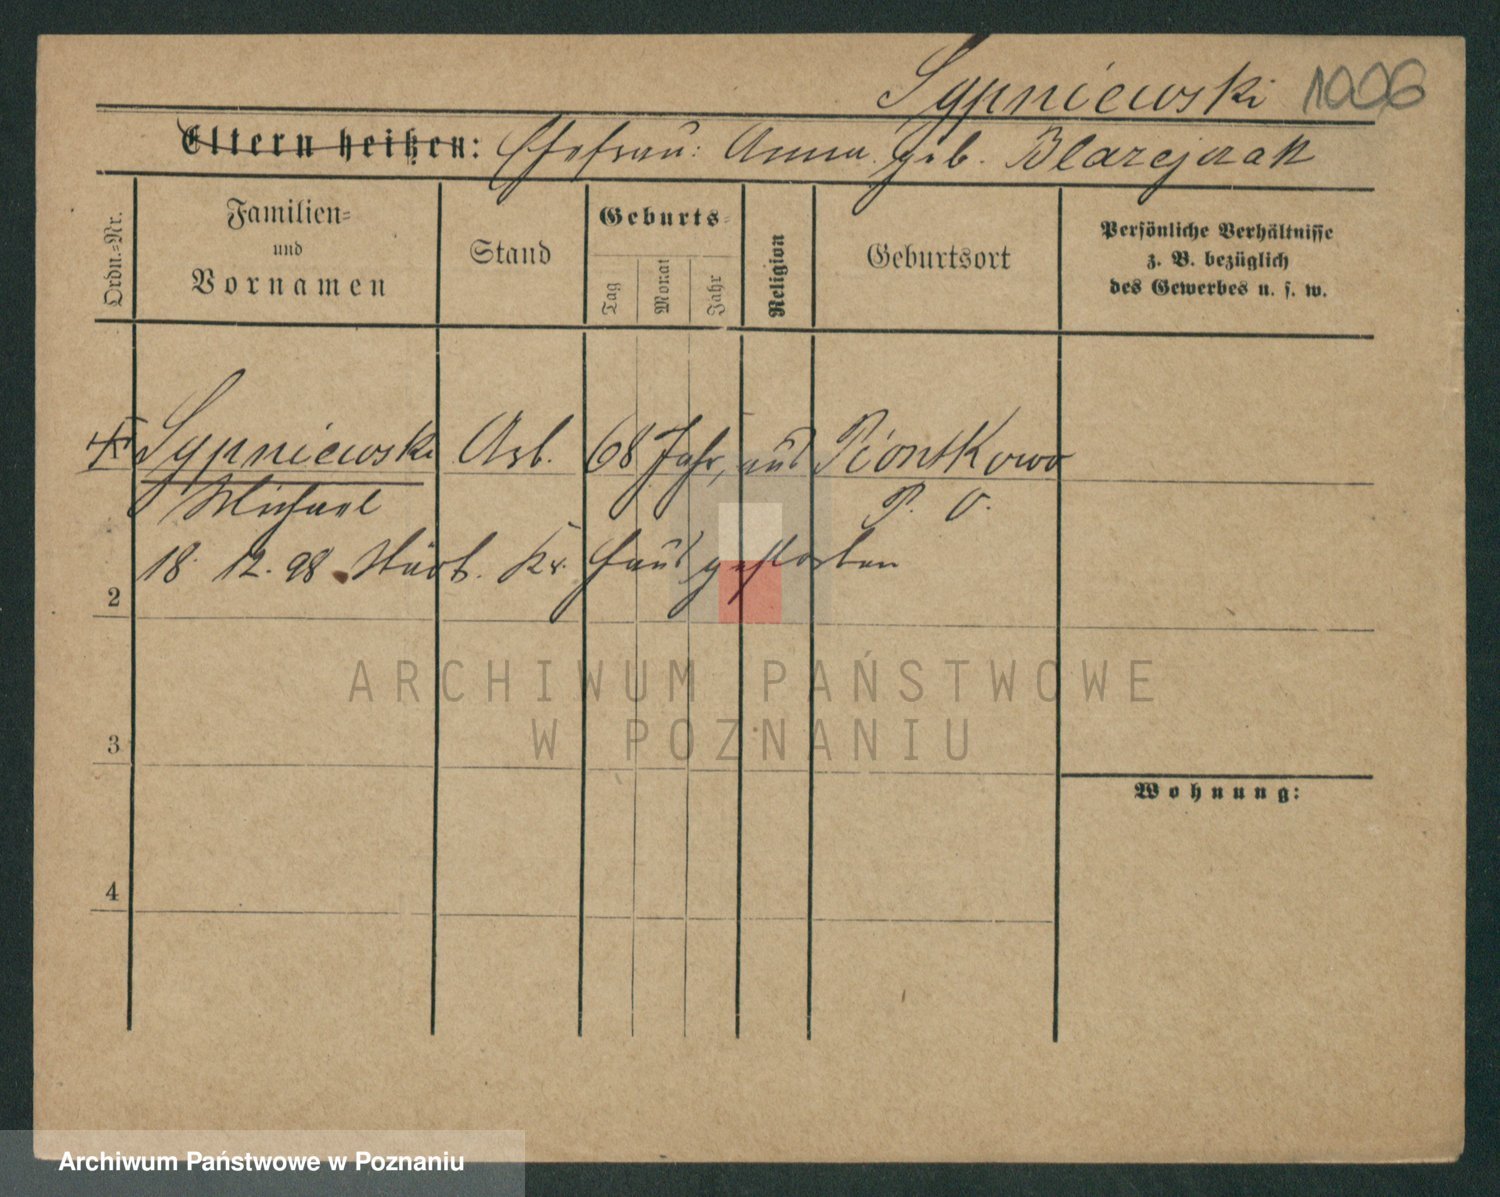 Sypniewski 1006
Eltern heißen: Ehefrau: Anna geb. Blazejczak
Ordn.=Nr.
Familien=
und
Vornamen
Stand
Geburts=
Tag
Monat
Jahr
Religion
Geburtsort
Persönliche Verhältnisse
z. B. bezüglich
des Gewerbes u. s. w.
Sypniewski Arb. 68 Jahr, aus Piontkowo
Michael P. O.
18. 12. 98 Städt. Kr. Haus gestorben
2
3
4
Wohnung:
ARCHIWUM PAŃSTWOWE
W POZNANIU
Archiwum Państwowe w Poznaniu